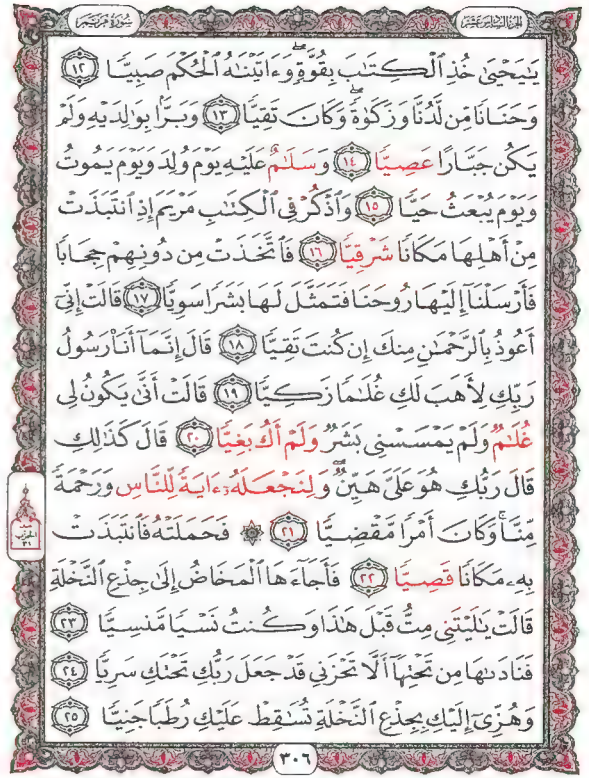 الجزء السادس عشر
سورة مريم
يَٰيَحْيَىٰ خُذِ ٱلْكِتَٰبَ بِقُوَّةٍۖ وَءَاتَيْنَٰهُ ٱلْحُكْمَ صَبِيًّا ١٢
وَحَنَانًا مِّن لَّدُنَّا وَزَكَوٰةًۖ وَكَانَ تَقِيًّا ١٣ وَبَرًّۢا بِوَٰلِدَيْهِ وَلَمْ
يَكُن جَبَّارًا عَصِيًّا ١٤ وَسَلَٰمٌ عَلَيْهِ يَوْمَ وُلِدَ وَيَوْمَ يَمُوتُ
وَيَوْمَ يُبْعَثُ حَيًّا ١٥ وَٱذْكُرْ فِى ٱلْكِتَٰبِ مَرْيَمَ إِذِ ٱنتَبَذَتْ
مِنْ أَهْلِهَا مَكَانًا شَرْقِيًّا ١٦ فَٱتَّخَذَتْ مِن دُونِهِمْ حِجَابًا
فَأَرْسَلْنَآ إِلَيْهَا رُوحَنَا فَتَمَثَّلَ لَهَا بَشَرًا سَوِيًّا ١٧ قَالَتْ إِنِّىٓ
أَعُوذُ بِٱلرَّحْمَٰنِ مِنكَ إِن كُنتَ تَقِيًّا ١٨ قَالَ إِنَّمَآ أَنَا۠ رَسُولُ
رَبِّكِ لِأَهَبَ لَكِ غُلَٰمًا زَكِيًّا ١٩ قَالَتْ أَنَّىٰ يَكُونُ لِى
غُلَٰمٌ وَلَمْ يَمْسَسْنِى بَشَرٌ وَلَمْ أَكُ بَغِيًّا ٢٠ قَالَ كَذَٰلِكِ
قَالَ رَبُّكِ هُوَ عَلَىَّ هَيِّنٌۖ وَلِنَجْعَلَهُۥٓ ءَايَةً لِّلنَّاسِ وَرَحْمَةً
مِّنَّاۚ وَكَانَ أَمْرًا مَّقْضِيًّا ٢١ ۞ فَحَمَلَتْهُ فَٱنتَبَذَتْ
بِهِۦ مَكَانًا قَصِيًّا ٢٢ فَأَجَآءَهَا ٱلْمَخَاضُ إِلَىٰ جِذْعِ ٱلنَّخْلَةِ
قَالَتْ يَٰلَيْتَنِى مِتُّ قَبْلَ هَٰذَا وَكُنتُ نَسْيًا مَّنسِيًّا ٢٣
فَنَادَىٰهَا مِن تَحْتِهَآ أَلَّا تَحْزَنِى قَدْ جَعَلَ رَبُّكِ تَحْتَكِ سَرِيًّا ٢٤
وَهُزِّىٓ إِلَيْكِ بِجِذْعِ ٱلنَّخْلَةِ تُسَٰقِطْ عَلَيْكِ رُطَبًا جَنِيًّا ٢٥
الحزب
٣١
٣٠٦